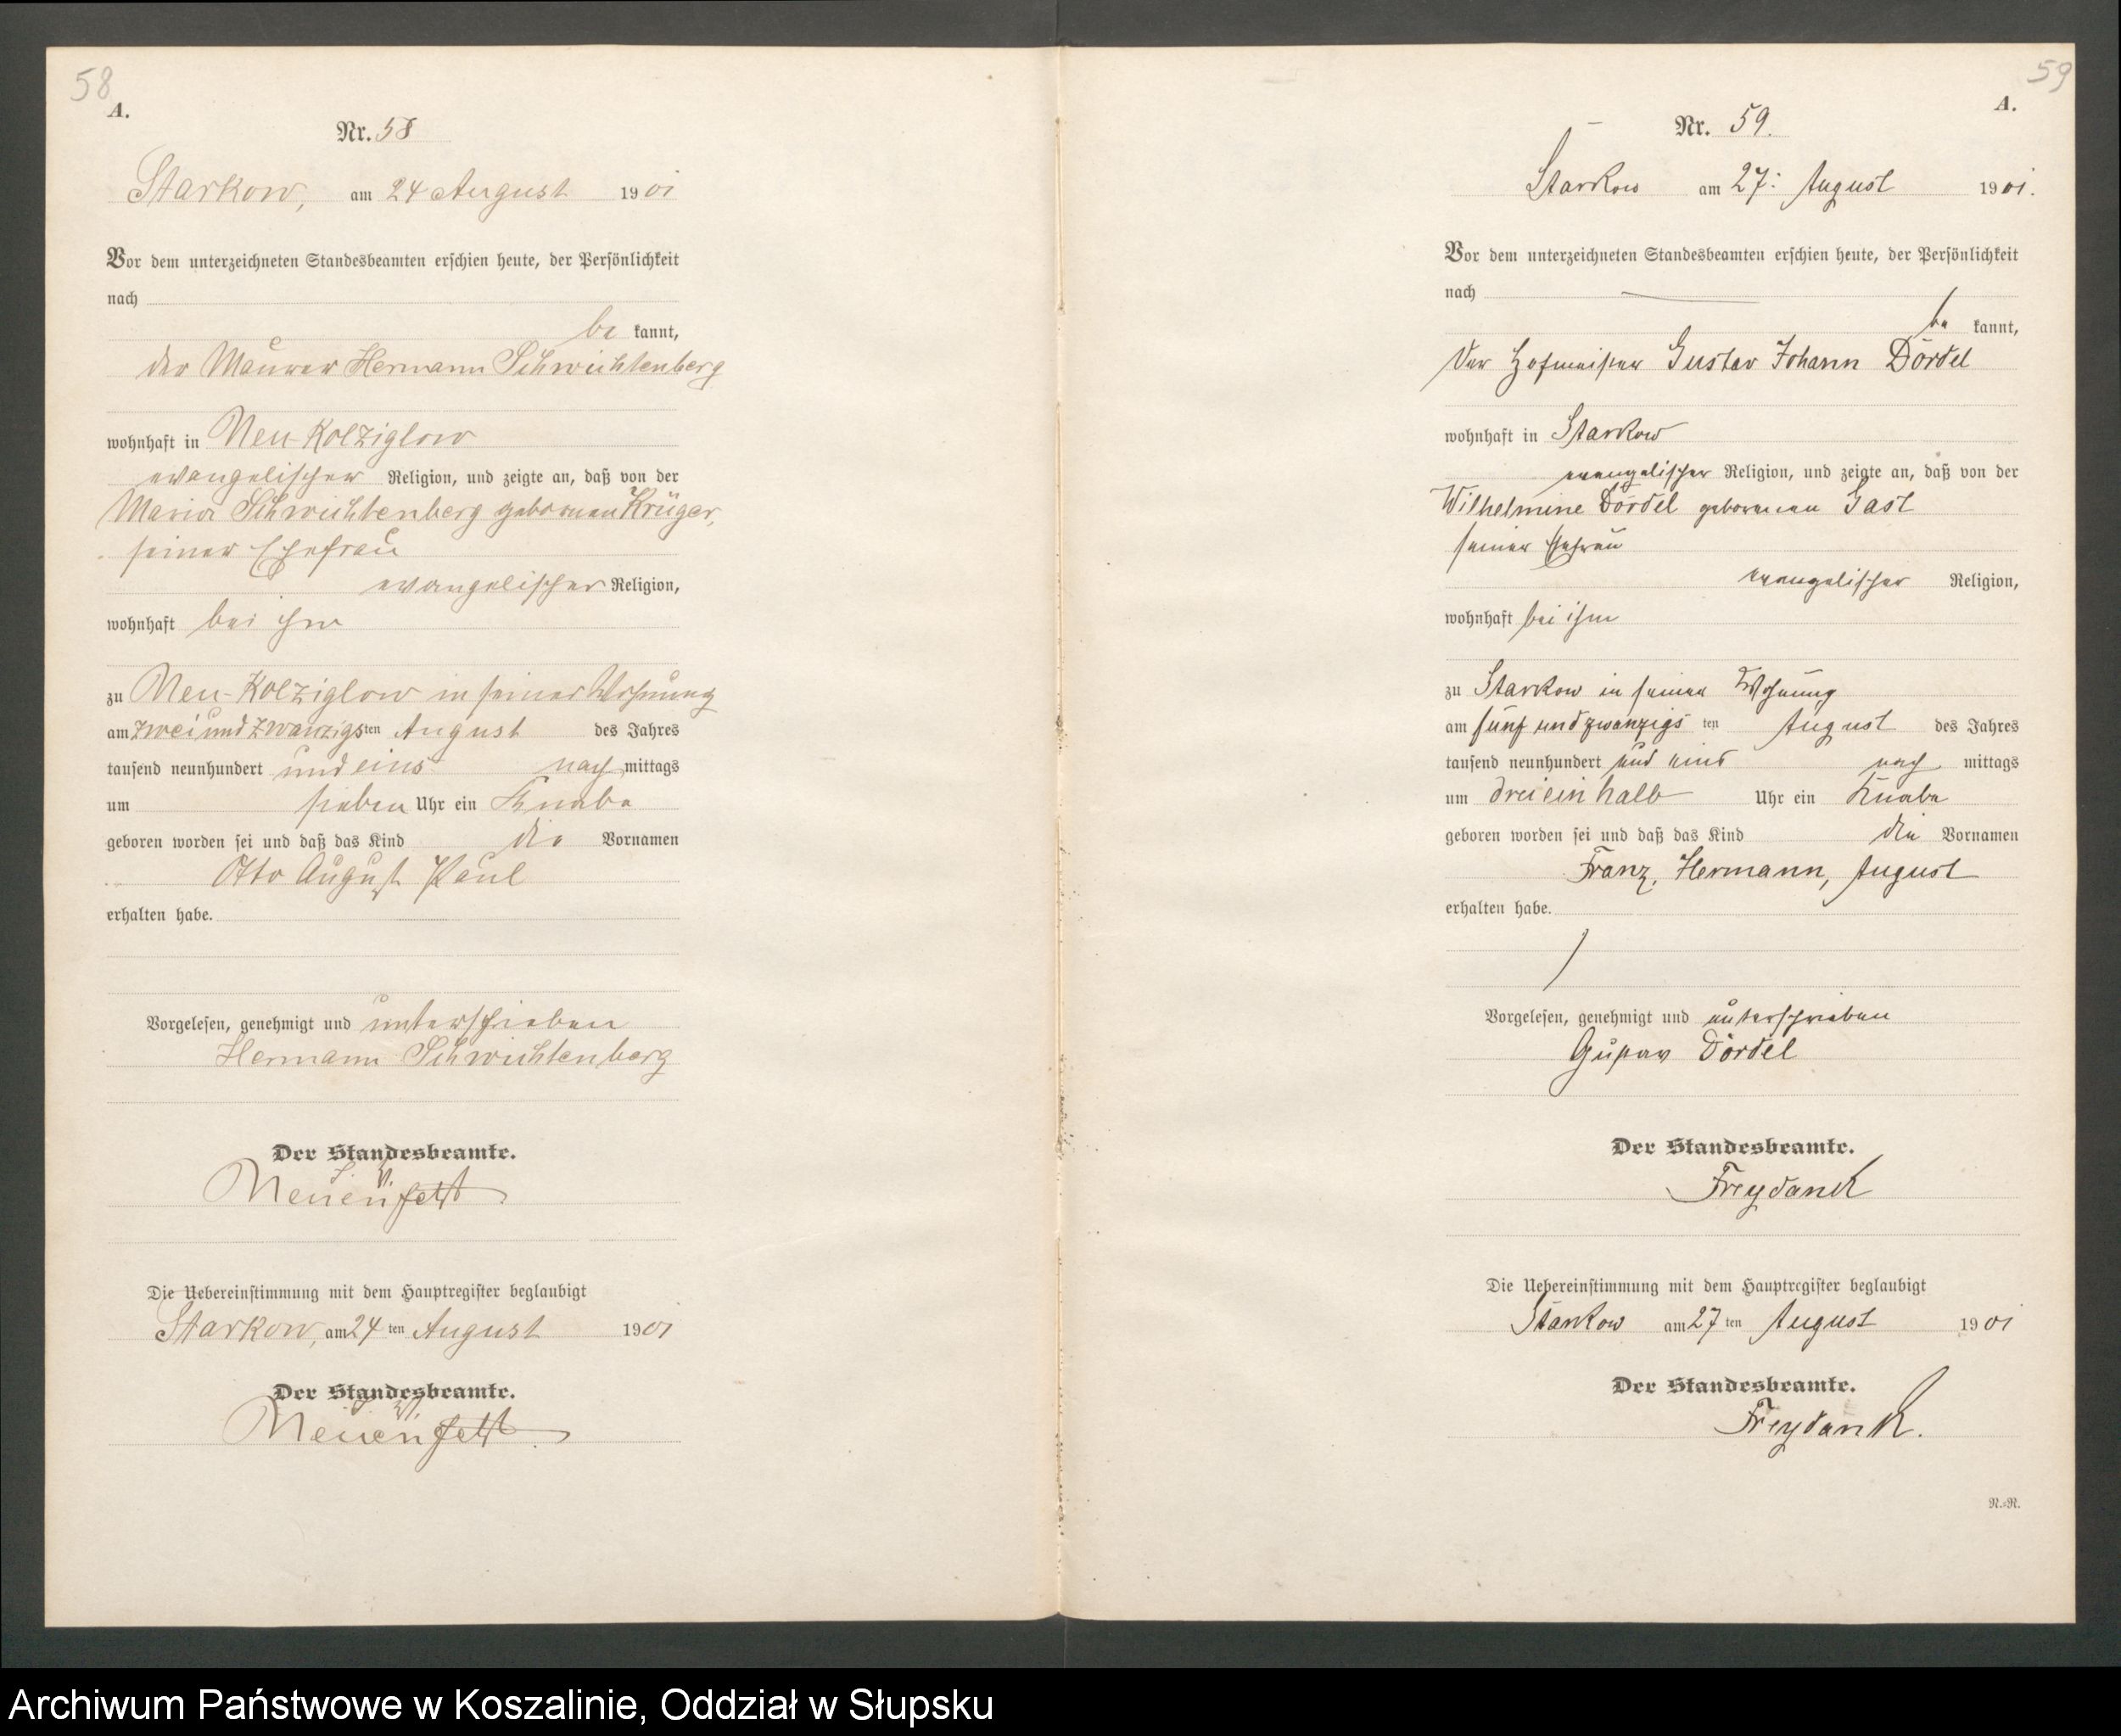 58
A.
Nr. 58
Starkow, am 24 August 1901
Vor dem unterzeichneten Standesbeamten erschien heute, der Persönlichkeit
nach
be kannt,
der Maurer Hermann Schwichtenberg
wohnhaft in Neu-Kolziglow
evangelischer Religion, und zeigte an, daß von der
Maria Schwichtenberg geborenen Krüger,
seiner Ehefrau
evangelischer Religion,
wohnhaft bei ihm
zu Neu-Kolziglow in seiner Wohnung
am zwei und zwanzigsten August des Jahres
tausend neunhundert und eins nach mittags
um sieben Uhr ein Knabe
geboren worden sei und daß das Kind die Vornamen
Otto August Paul
erhalten habe.
Vorgelesen, genehmigt und unterschrieben
Hermann Schwichtenberg
Der Standesbeamte.
Die Uebereinstimmung mit dem Hauptregister beglaubigt
Starkow, am 24 ten August 1901
Der Standesbeamte.
59
A.
Nr. 59.
Starkow am 27. August 1901.
Vor dem unterzeichneten Standesbeamten erschien heute, der Persönlichkeit
nach
be kannt,
Der Hofmeister Gustav Johann Dördel
wohnhaft in Starkow
evangelischer Religion, und zeigte an, daß von der
Wilhelmine Dördel geborenen Gast
seiner Ehefrau
evangelischer Religion,
wohnhaft bei ihm
zu Starkow in seiner Wohnung
am fünf und zwanzigs ten August des Jahres
tausend neunhundert und eins nach mittags
um drei ein halb Uhr ein Knabe
geboren worden sei und daß das Kind die Vornamen
Franz, Hermann, August
erhalten habe.
Vorgelesen, genehmigt und unterschrieben
Gustav Dördel
Der Standesbeamte.
Freydank
Die Uebereinstimmung mit dem Hauptregister beglaubigt
Starkow am 27 ten August 1901
Der Standesbeamte.
Freydank.
N.=N.
Archiwum Państwowe w Koszalinie, Oddział w Słupsku